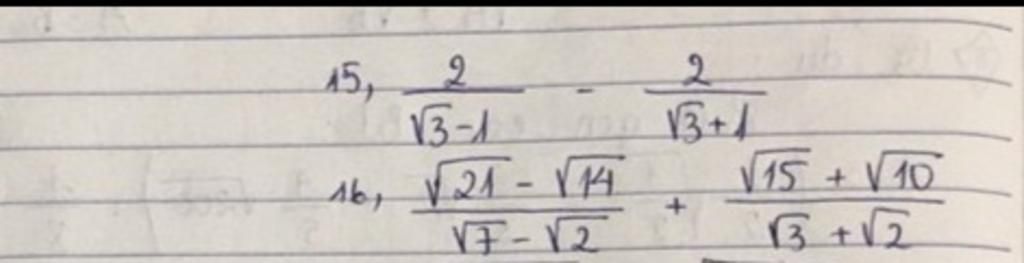 15, 2/(√3-1) - 2/(√3+1)
16, (√21 - √14)/(√7 - √2) + (√15 + √10)/(√3 + √2)